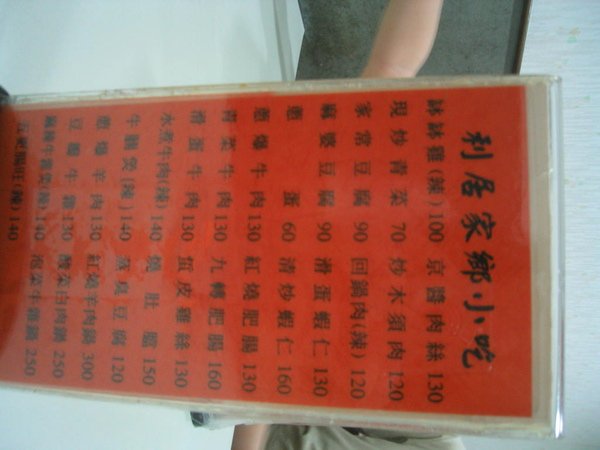 利居家鄉小吃
缽缽雞(辣)100 京醬肉絲130
現炒青菜70 炒木須肉120
家常豆腐90 回鍋肉(辣)120
麻婆豆腐90 滑蛋蝦仁130
蔥蛋60 清炒蝦仁160
蔥爆牛肉130 紅燒肥腸130
青菜牛肉130 九轉肥腸160
滑蛋牛肉130 蛋皮雞絲130
水煮牛肉(辣)140 150
牛腩煲(辣)140 蒸臭豆腐120
蔥爆羊肉130 紅燒羊肉鍋300
130 酸菜白肉鍋250
(辣)140 泡菜牛雜鍋250
腸旺(辣)140